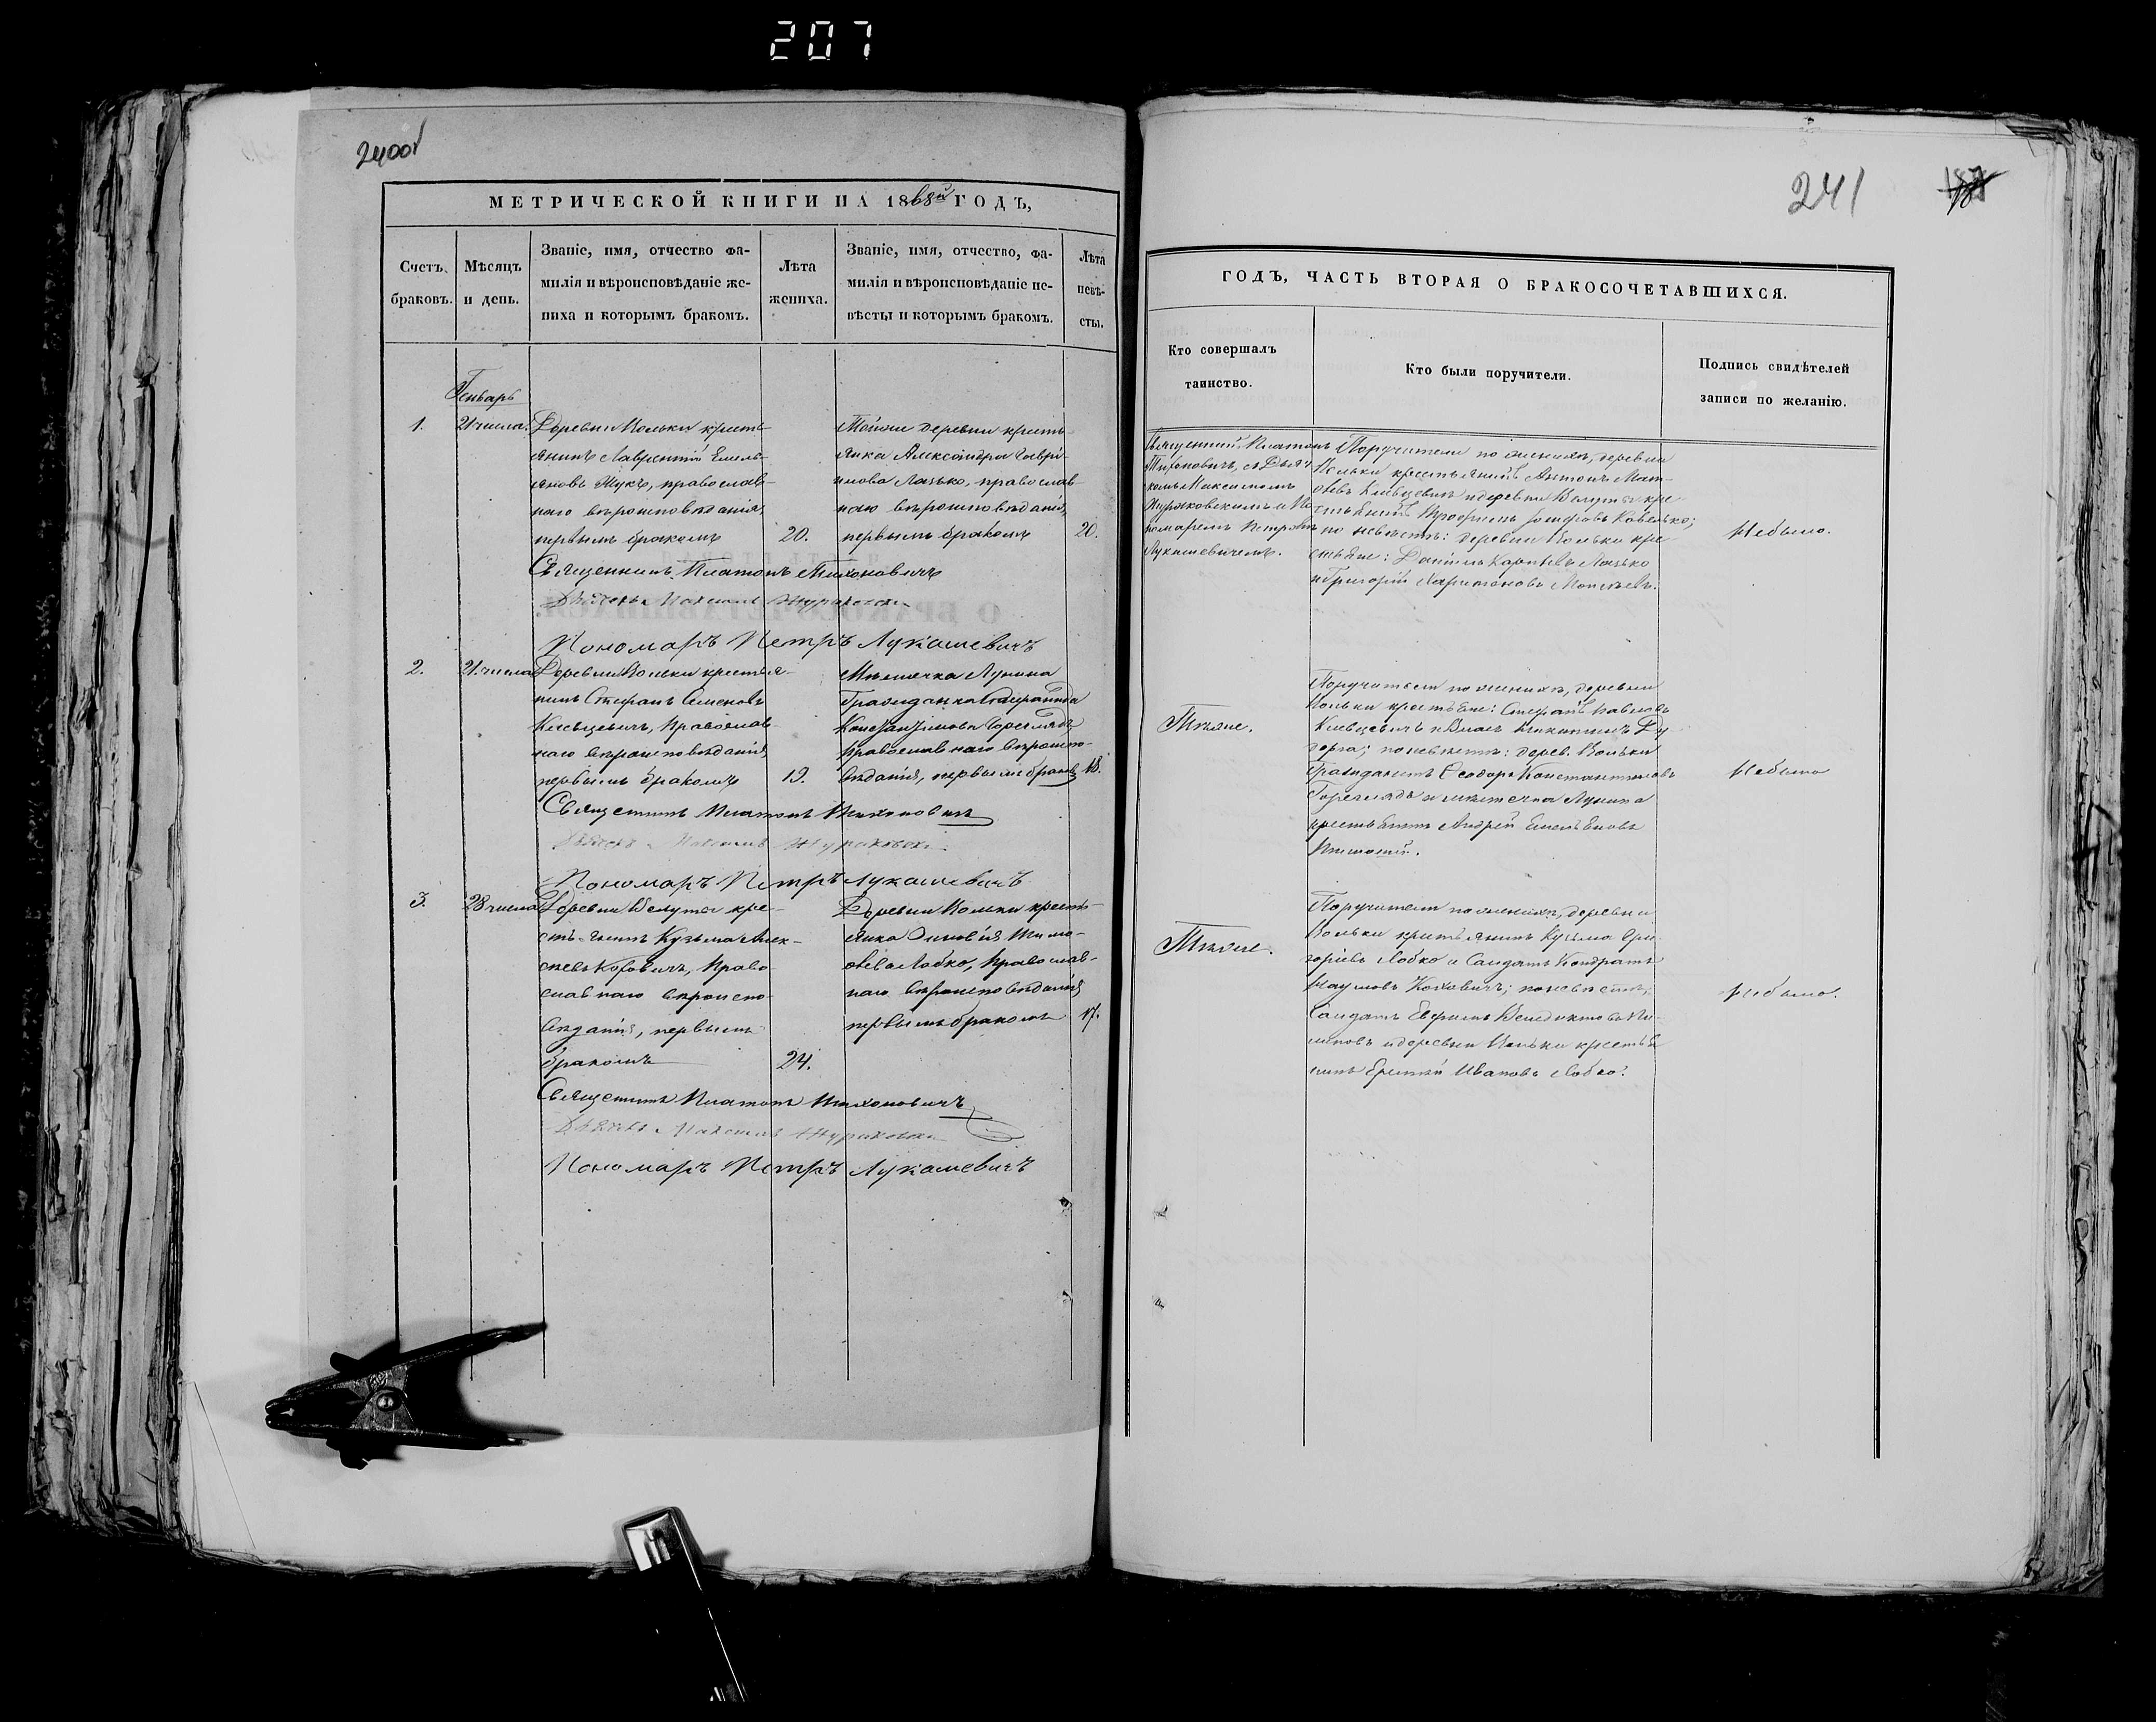 207
240об
МЕТРИЧЕСКОЙ КНИГИ НА 1868й ГОДЪ,
Счетъ браковъ.
Мѣсяцъ и день.
Званіе, имя, отчество фа-
милія и вѣроисповѣданіе же-
ниха и которымъ бракомъ.
Лѣта
жениха.
Званіе, имя, отчество, фа-
милія и вѣроисповѣданіе не-
вѣсты и которымъ бракомъ.
Лѣта
невѣ-
сты.
Генварь
1.
21 числа.
Деревни Вольки кресть-
янинъ Лаврентій Емель-
яновъ Жукъ, православ-
наго вѣроисповѣданія,
первымъ бракомъ
20.
Тойже деревни кресть-
янка Александра Гаврі-
илова Лазько, православ-
наго вѣроисповѣданія,
первымъ бракомъ
20.
Священникъ Платонъ Тихоновичъ
Дьячекъ Максимъ Жураковски
Пономаръ Петръ Лукашевичъ
2.
21 числа
Деревни Вольки крестья-
нинъ Стефанъ Семеновъ
Клевцевичъ, православ-
наго вѣроисповѣданія,
первымъ бракомъ
19.
Мѣстечка Лунина
Гражданка
Константинова Гореглядъ
православнаго вѣроиспо-
вѣданія, первымъ бракомъ
18.
Священникъ Платонъ Тихоновичъ
Дьячекъ Максимъ Жураковски
Пономаръ Петръ Лукашевичъ
3.
28 числа
Деревни Велута кре-
стьянинъ Кузьма Алек-
сѣевъ Коховичъ, право-
славнаго вѣроиспо-
вѣданія, первымъ
бракомъ
24.
Деревни Вольки кресть-
янка Зиновія Тимо-
ѳеева Лобко, православ-
наго вѣроисповѣданія
первымъ бракомъ
17.
Священникъ Платонъ Тихоновичъ
Дьячекъ Максимъ Жураковски
Пономаръ Петръ Лукашевичъ
241
ГОДЪ, ЧАСТЬ ВТОРАЯ О БРАКОСОЧЕТАВШИХСЯ.
Кто совершалъ
таинство.
Кто были поручители.
Подпись свидѣтелей
записи по желанію.
Священникъ Платонъ
Тихоновичъ, съ Дьяч-
комъ Максимомъ
Жураковскимъ и По-
номаремъ Петромъ
Лукашевичемъ.
Поручители по женихѣ, деревни
Вольки крестьянинъ Антонъ Мат-
ѳѣевъ Клевцевичъ и деревни Велута кре-
стьянинъ Трофимъ Ковалько;
по невѣстѣ: деревни Вольки кре-
стьяне: Даніилъ Карповъ Лазько
и Григорій Харитоновъ
Не было.
Тѣже.
Поручители по женихѣ, деревни
Вольки крестьяне: Стефанъ Павловъ
Клевцевичъ и Власъ Никитинъ Ду-
борга; по невѣстѣ: дерев. Вольки
Гражданинъ Ѳеодоръ Константиновъ
Гореглядъ и мѣстечка Лунина
крестьянинъ Андрей Емельяновъ
Не было
Тѣже.
Поручители по женихѣ, деревни
Вольки крестьянинъ Кузьма Гри-
горіевъ Лобко и Солдатъ Кондратъ
Наумовъ Коховичъ; по невѣстѣ;
Солдатъ Ефимъ Венедиктовъ
и деревни Вольки крестья-
нинъ Иванъ Лобко.
Не было.